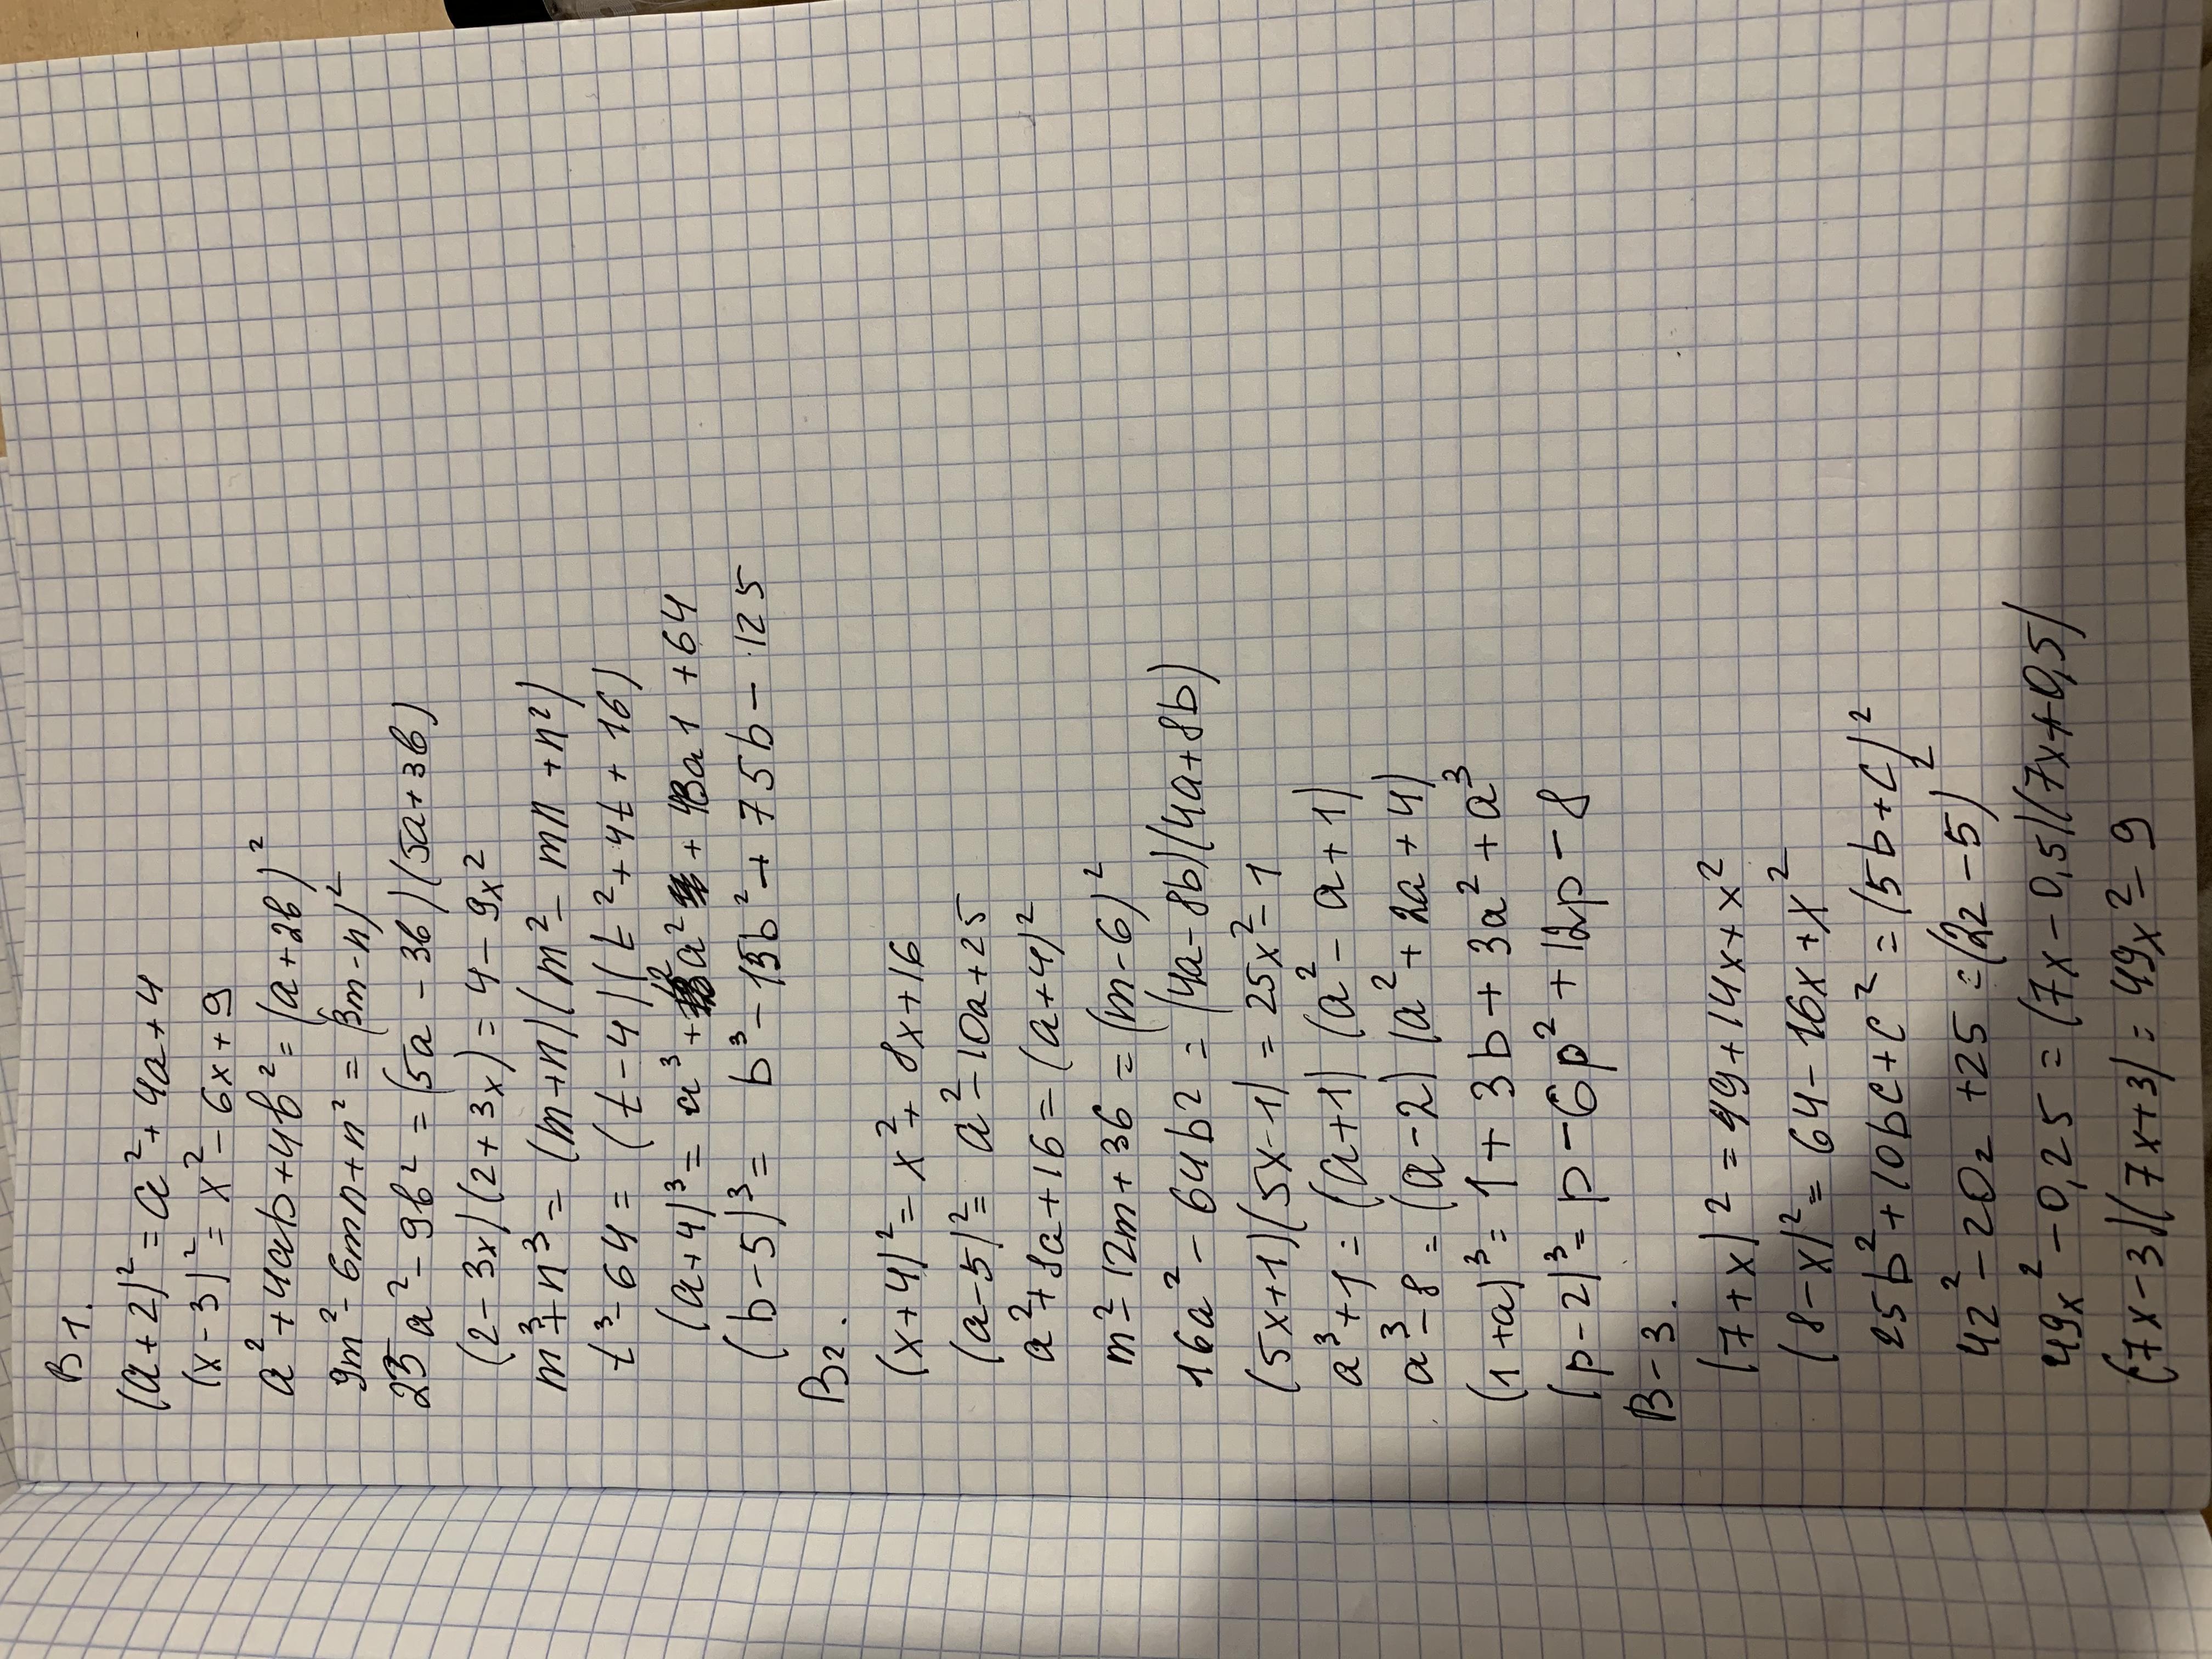 В 1.
(a+2)² = a² + 4a + 4
(x-3)² = x² - 6x + 9
a² + 4ab + 4b² = (a + 2b)²
9m² - 6mn + n² = (3m - n)²
25a² - 9b² = (5a - 3b)(5a + 3b)
(2 - 3x)(2 + 3x) = 4 - 9x²
m³ + n³ = (m + n)(m² - mn + n²)
t³ - 64 = (t - 4)(t² + 4t + 16)
(a+4)³ = a³ + 12a² + 48a + 64
(b-5)³ = b³ - 15b² + 75b - 125
В2.
(x+4)² = x² + 8x + 16
(a-5)² = a² - 10a + 25
a² + 8a + 16 = (a+4)²
m² - 12m + 36 = (m - 6)²
16a² - 64b2 = (4a - 8b)(4a + 8b)
(5x+1)(5x-1) = 25x² - 1
a³ + 1 = (a+1)(a² - a + 1)
a³ - 8 = (a-2)(a² + 2a + 4)
(1+a)³ = 1 + 3b + 3a² + a³
(p-2)³ = p - 6p² + 12p - 8
В-3.
(7+x)² = 49 + 14x + x²
(8-x)² = 64 - 16x + x²
25b² + 10bc + c² = (5b + c)²
4z² - 20z + 25 = (2z - 5)²
49x² - 0,25 = (7x - 0,5)(7x + 0,5)
(7x - 3)(7x + 3) = 49x² - 9